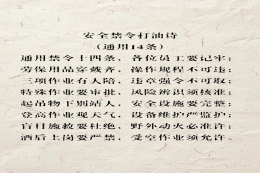 安全禁令打油诗
（通用14条）
通用禁令十四条，各位员工要记牢；
劳保用品穿戴齐，操作规程不可违；
三项作业有人陪，违章强令不可取；
特殊作业要审批，风险辨识须核准；
起吊物下别站人，安全设施要完整；
登高作业观天气，设备维护严监护；
盲目施救要杜绝，野外动火必准许；
酒后上岗要严禁，受空作业须允许。